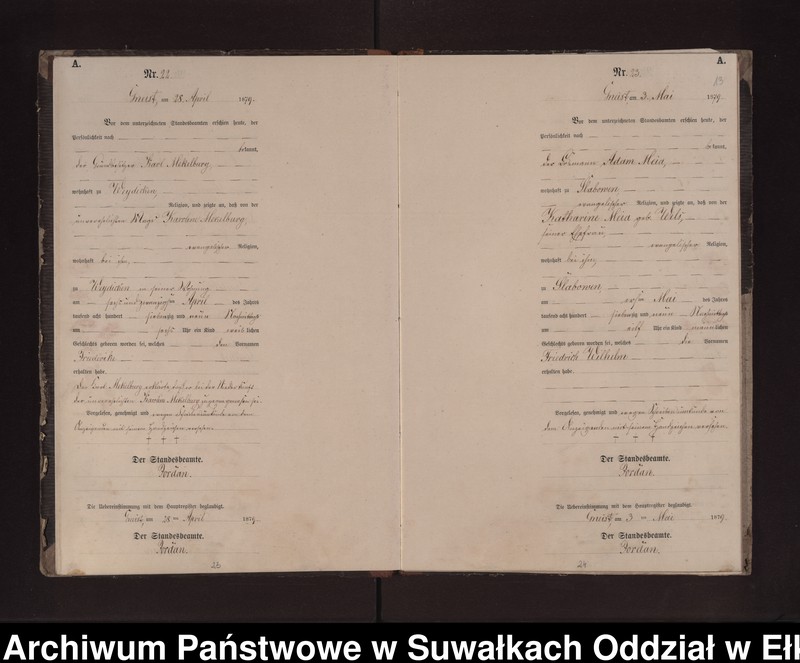 A.
Nr. 22.
Gneist, am 28. April 1879.
Vor dem unterzeichneten Standesbeamten erschien heute, der
Persönlichkeit nach
bekannt,
der Grundbesitzer Karl Mekelburg,
wohnhaft zu Weydicken
Religion, und zeigte an, daß von der
unverehelichten Karoline Mekelburg,
evangelischer Religion,
wohnhaft bei ihm,
zu Weydicken in seiner Wohnung
am sechs und zwanzigsten April des Jahres
tausend acht hundert siebenzig und neun Nachmittags
um sechs Uhr ein Kind weiblichen
Geschlechts geboren worden sei, welches den Vornamen
Friedericke
erhalten habe.
Der Karl Mekelburg erklärte, daß er bei der Niederkunft
der unverehelichten Karoline Mekelburg zugegen gewesen sei.
Vorgelesen, genehmigt und wegen Schreibunkunde von dem
Anzeigenden mit seinem Handzeichen versehen.
† † †
Der Standesbeamte.
Jordan.
Die Uebereinstimmung mit dem Hauptregister beglaubigt.
Gneist, am 28ten April 1879.
Der Standesbeamte.
Jordan.
23
A.
Nr. 23.
Gneist, am 3. Mai 1879.
Vor dem unterzeichneten Standesbeamten erschien heute, der
Persönlichkeit nach
bekannt,
der Losmann Adam Meia,
wohnhaft zu Slabowen,
evangelischer Religion, und zeigte an, daß von der
Katharine Meia geb.
seiner Ehefrau,
evangelischer Religion,
wohnhaft bei ihm,
zu Slabowen
am ersten Mai des Jahres
tausend acht hundert siebenzig und neun Nachmittags
um Uhr ein Kind männlichen
Geschlechts geboren worden sei, welches die Vornamen
Friedrich Wilhelm
erhalten habe.
Vorgelesen, genehmigt und wegen Schreibunkunde von
dem Anzeigenden mit seinem Handzeichen versehen.
† † †
Der Standesbeamte.
Jordan.
Die Uebereinstimmung mit dem Hauptregister beglaubigt.
Gneist, am 3ten Mai 1879.
Der Standesbeamte.
Jordan.
24
Archiwum Państwowe w Suwałkach Oddział w Ełk